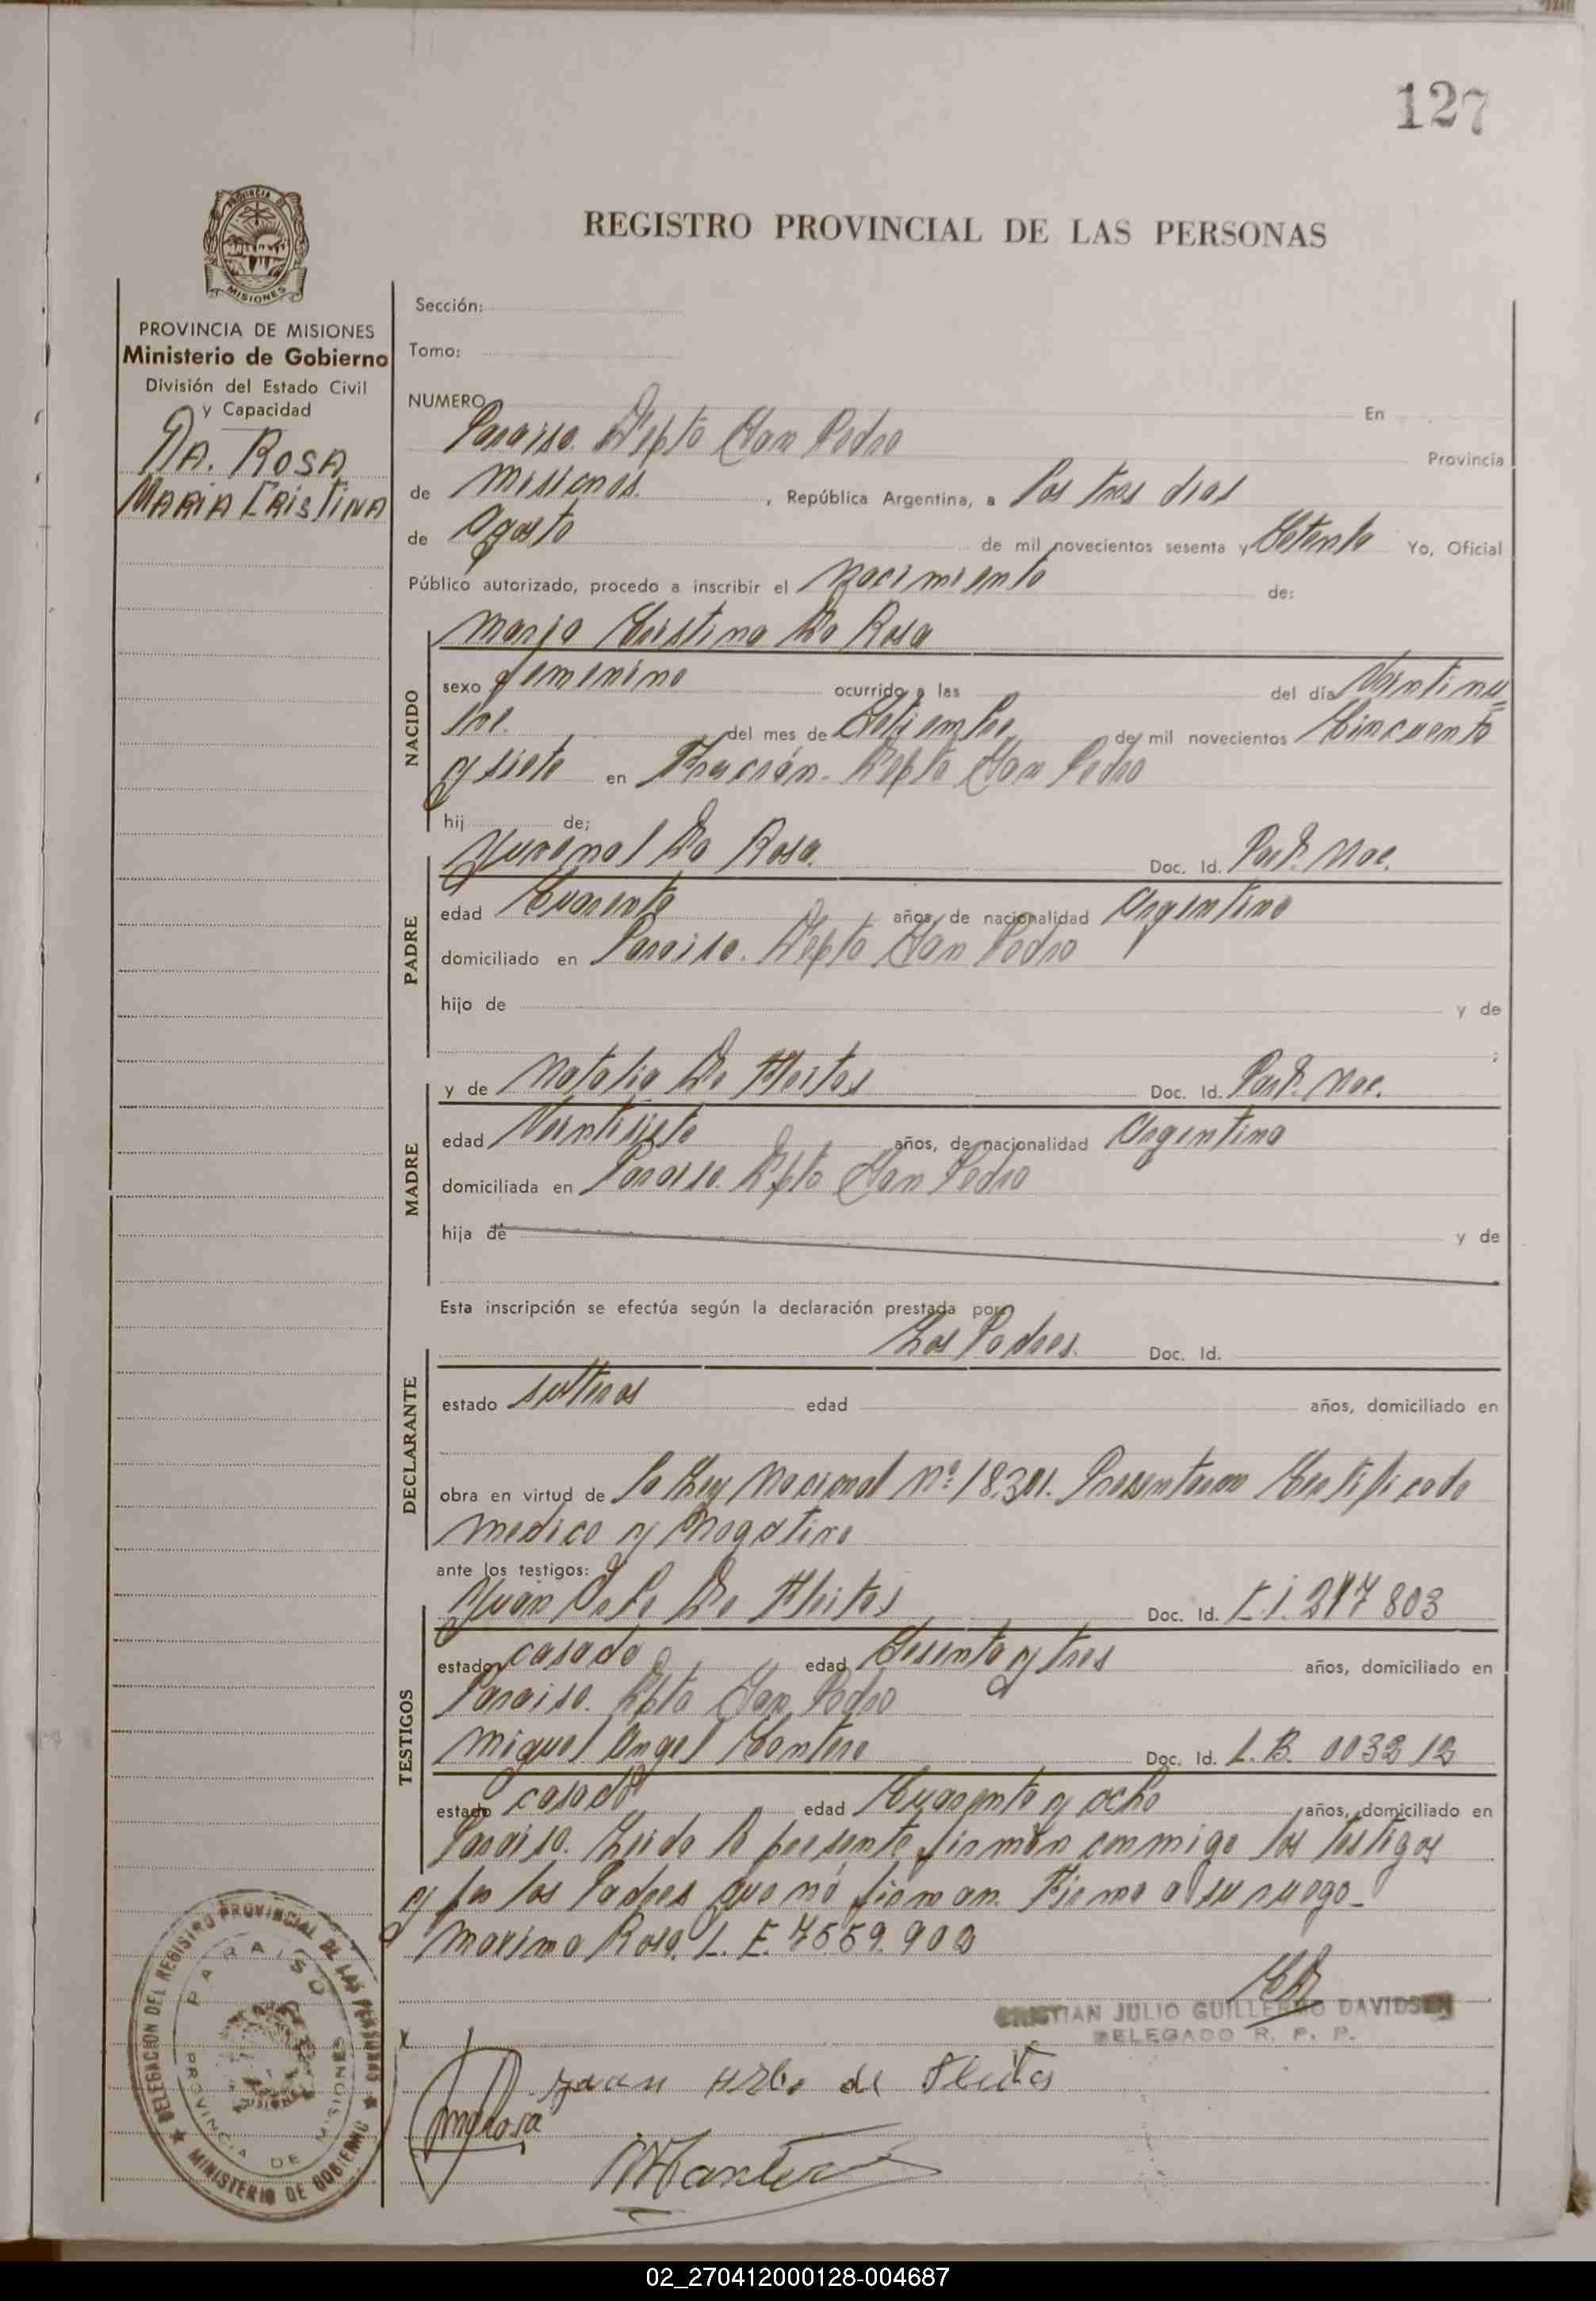 127
PROVINCIA DE
MISIONES
REGISTRO PROVINCIAL DE LAS PERSONAS
PROVINCIA DE MISIONES
Ministerio de Gobierno
División del Estado Civil
y Capacidad
DA. ROSA
MARIA CRISTINA
Sección:
Tomo:
NUMERO En
Paraiso. Depto San Pedro Provincia
de Misiones. , República Argentina, a los tres dias
de Agosto de mil novecientos sesenta y Setenta Yo, Oficial
Público autorizado, procedo a inscribir el Nacimiento de:
NACIDO
Maria Cristina Da Rosa
sexo femenino ocurrido a las del día Veintinu=
eve. del mes de Setiembre de mil novecientos Cincuenta
y siete en Fracrán. Depto San Pedro
hij de;
PADRE
Juvenal Da Rosa. Doc. Id. Part. Nac.
edad Cuarenta años, de nacionalidad Argentino
domiciliado en Paraiso. Depto San Pedro
hijo de y de
;
MADRE
y de Natalia De Fleitas Doc. Id. Part. Nac.
edad Veintisiete años, de nacionalidad Argentina
domiciliada en Paraiso. Depto San Pedro
hija de y de
Esta inscripción se efectúa según la declaración prestada por
DECLARANTE
Los Padres. Doc. Id.
estado solteros edad años, domiciliado en
obra en virtud de la Ley Nacional Nº 18.301. Presentaron Certificado
medico y Negativo
ante los testigos:
TESTIGOS
Juan De Fleitas Doc. Id. C.I. 217 803
estado casado edad Sesenta y tres años, domiciliado en
Paraiso. Depto San Pedro
Miguel Angel Cantero Doc. Id. L.B. 0033212
estado casado edad Cuarenta y ocho años, domiciliado en
Paraiso. Leida la presente firman conmigo los testigos
y por los Padres que no firman. Firma a su ruego-
Maximo Rosa. L. E. 7.559.902
CRISTIAN JULIO GUILLERMO DAVIDSEN
DELEGADO R. P. P.
x
Juan de Fleitas
DELEGACION DEL REGISTRO PROVINCIAL DE LAS PERSONAS
PARAISO
PROVINCIA DE MISIONES
MINISTERIO DE GOBIERNO
02_270412000128-004687